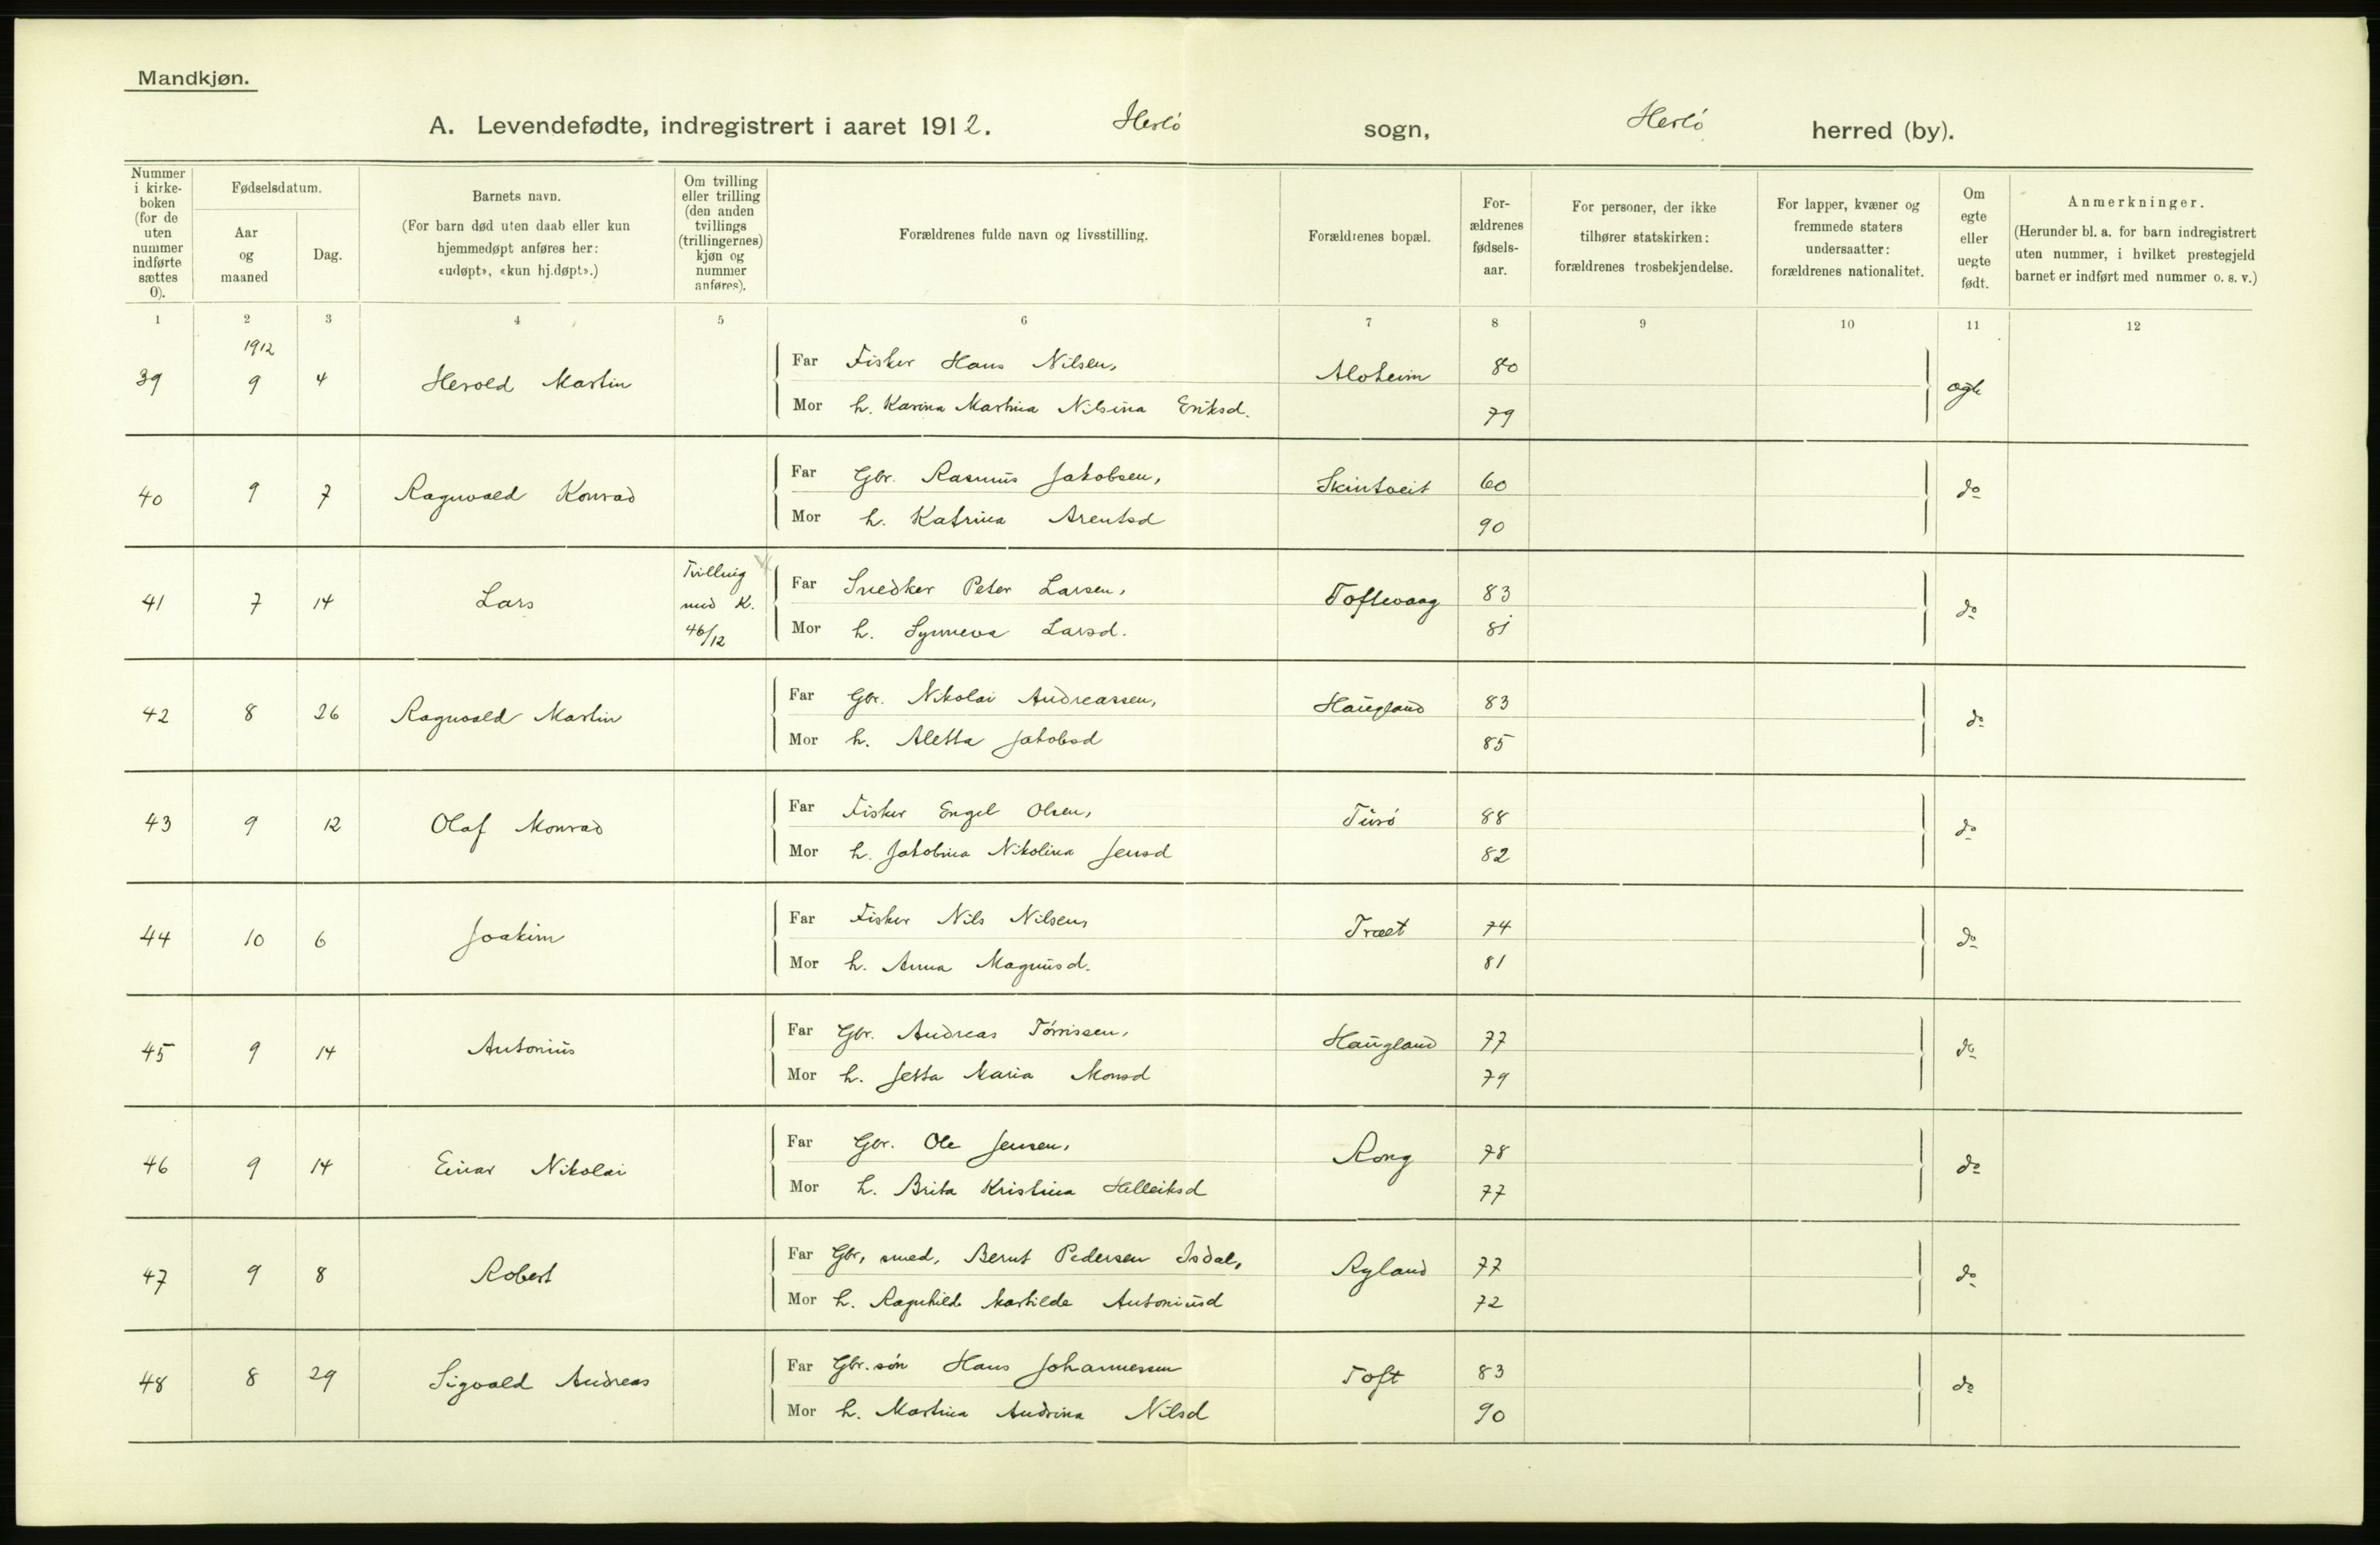 Mandkjøn.
A. Levendefødte, indregistrert i aaret 1912. Herlö sogn, Herlö herred (by).
Nummer i kirke-boken (for de uten nummer indførte sættes 0).
Fødselsdatum.
Aar og maaned
Dag.
Barnets navn.
(For barn død uten daab eller kun hjemmedøpt anføres her: «udøpt», «kun hj.døpt».)
Om tvilling eller trilling (den anden tvillings (trillingernes) kjøn og nummer anføres).
Forældrenes fulde navn og livsstilling.
Forældrenes bopæl.
For-ældrenes fødsels-aar.
For personer, der ikke tilhører statskirken: forældrenes trosbekjendelse.
For lapper, kvæner og fremmede staters undersaatter: forældrenes nationalitet.
Om egte eller uegte født.
Anmerkninger.
(Herunder bl. a. for barn indregistrert uten nummer, i hvilket prestegjeld barnet er indført med nummer o. s. v.)
1 2 3 4 5 6 7 8 9 10 11 12
1912
39 9 4 Herold Martin Far Fisker Hans Nilsen, Aloheim 80 egte
Mor h. Karina Martina Nilsina Eriksd. 79
40 9 7 Ragnvald Konrad Far Gbr. Rasmus Jakobsen, Skintveit 60 do
Mor h. Katrina Arentsd 90
41 7 14 Lars Tvilling med K. 46/12 Far Snedker Peter Larsen, Toftevaag 83 do
Mor h. Synneva Larsd. 81
42 8 26 Ragnvald Martin Far Gbr. Nikolai Andreassen, Haugland 83 do
Mor h. Aletta Jakobsd 85
43 9 12 Olaf Monrad Far Fisker Engel Olsen, Turö 88 do
Mor h. Jakobina Nikolina Jensd 82
44 10 6 Joakim Far Fisker Nils Nilsen, Træet 74 do
Mor h. Anna Magnusd. 81
45 9 14 Antonius Far Gbr. Andreas Törrissen, Haugland 77 do
Mor h. Jetta Maria Monsd 79
46 9 14 Einar Nikolai Far Gbr. Ole Jensen, Rong 78 do
Mor h. Brita Kristina Helleiksd 77
47 9 8 Robert Far Gbr, smed, Bernt Pedersen Isdal, Ryland 77 do
Mor h. Ragnhild Matilde Antoniusd 72
48 8 29 Sigvald Andreas Far Gbr. sön Hans Johannessen Toft 83 do
Mor h. Martina Andrina Nilsd 90